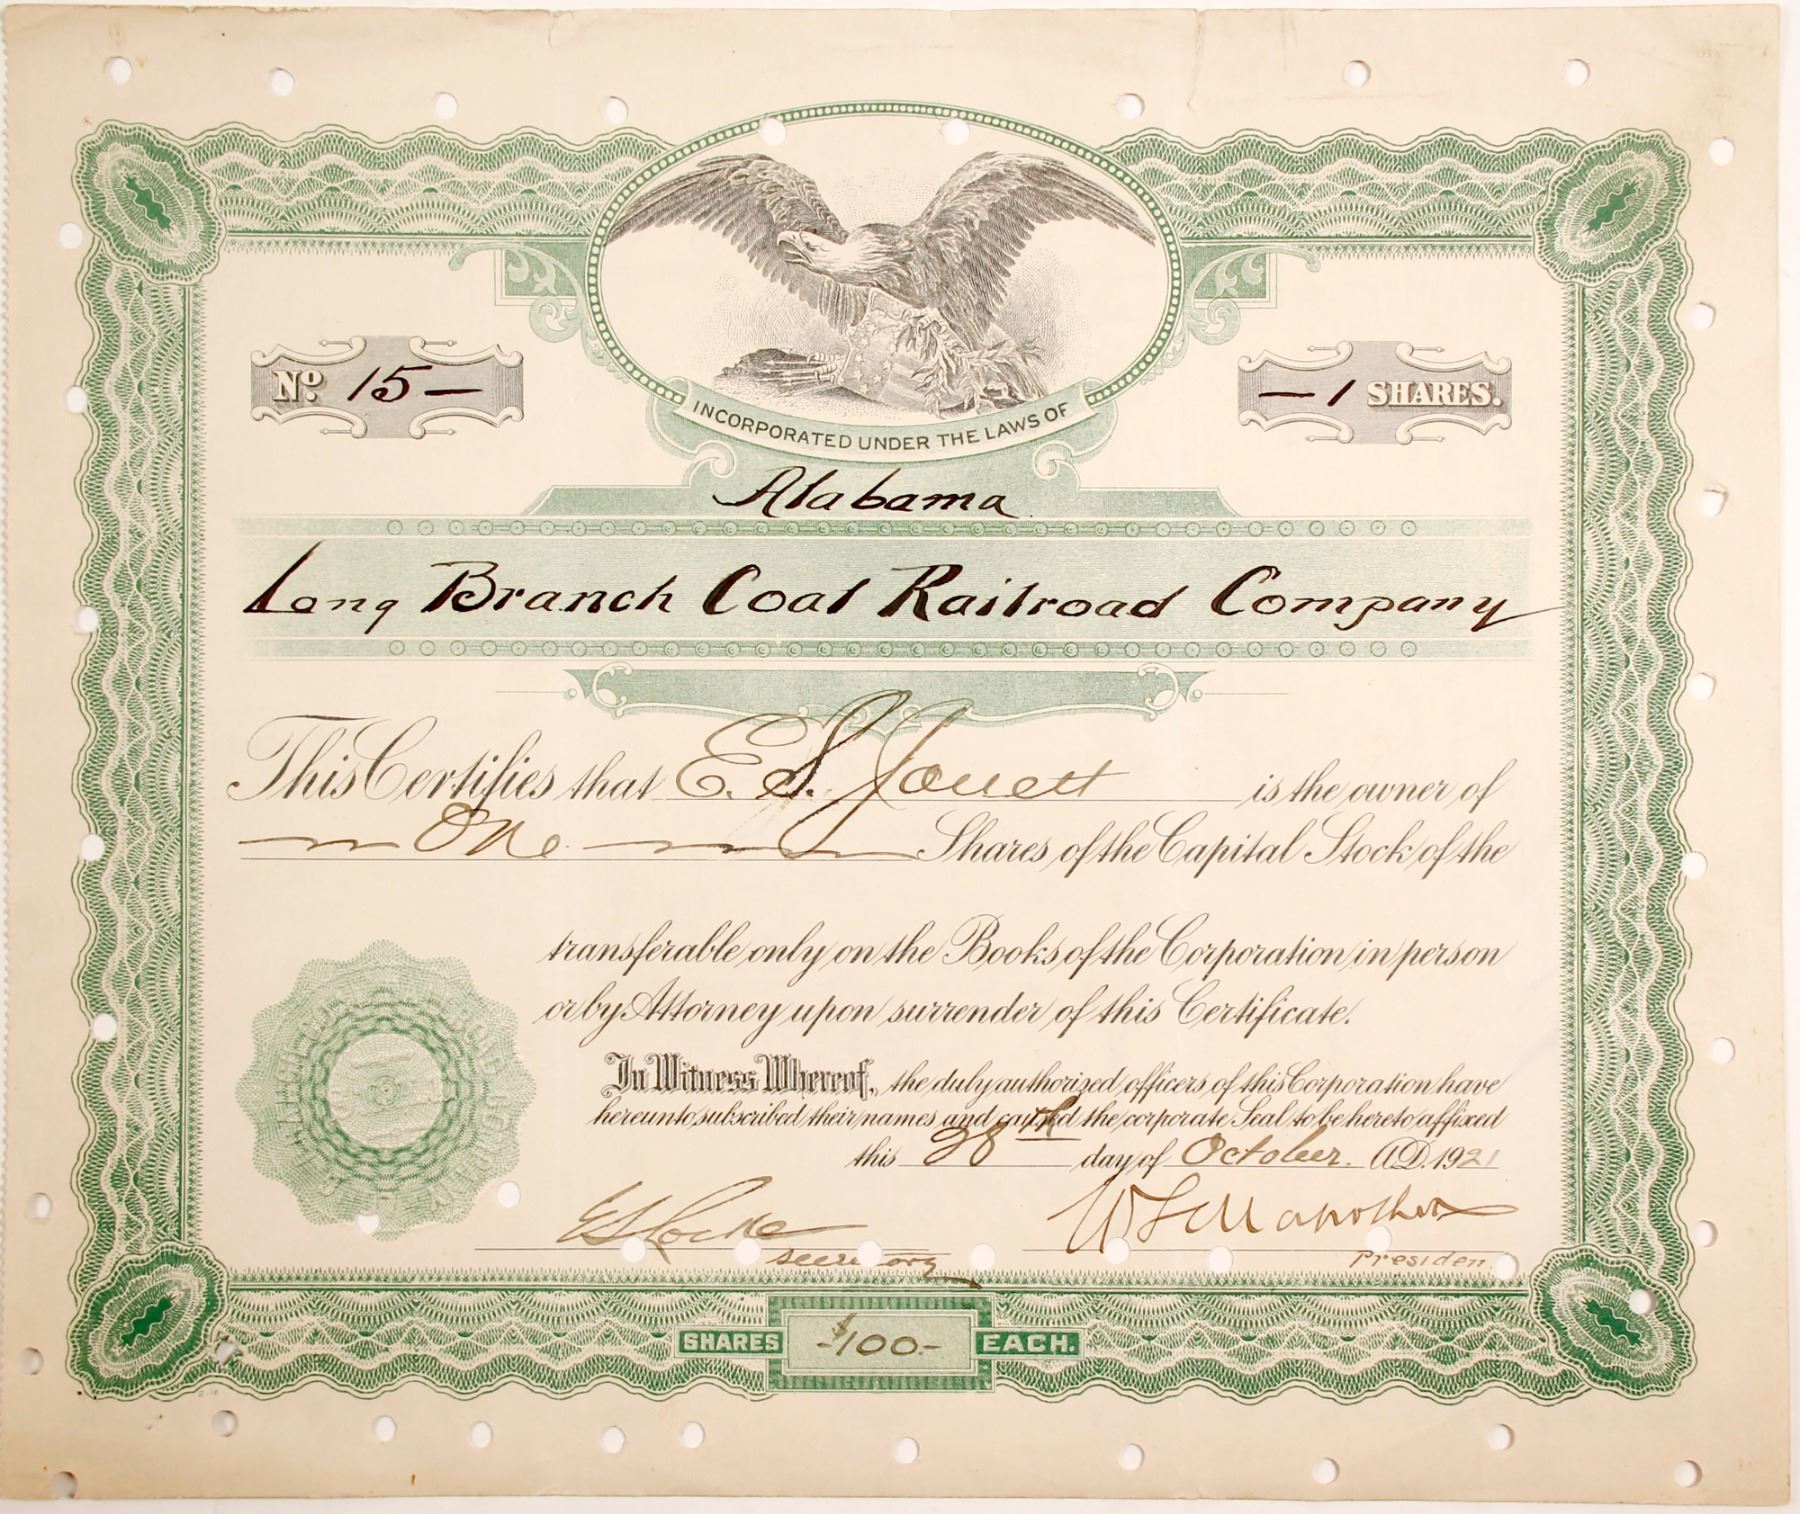 INCORPORATED UNDER THE LAWS OF
No. 15 —
— 1 SHARES.
Alabama
Long Branch Coal Railroad Company
This Certifies that E. S. Jouett is the owner of
One Shares of the Capital Stock of the
transferable only on the Books of the Corporation in person
or by Attorney upon surrender of this Certificate.
In Witness Whereof, the duly authorized officers of this Corporation have
hereunto subscribed their names and caused the corporate Seal to be hereto affixed
this 28th day of October. A.D. 1921
E S Locke
W L Mapother
Secretary
Presiden
SHARES -$100.- EACH.